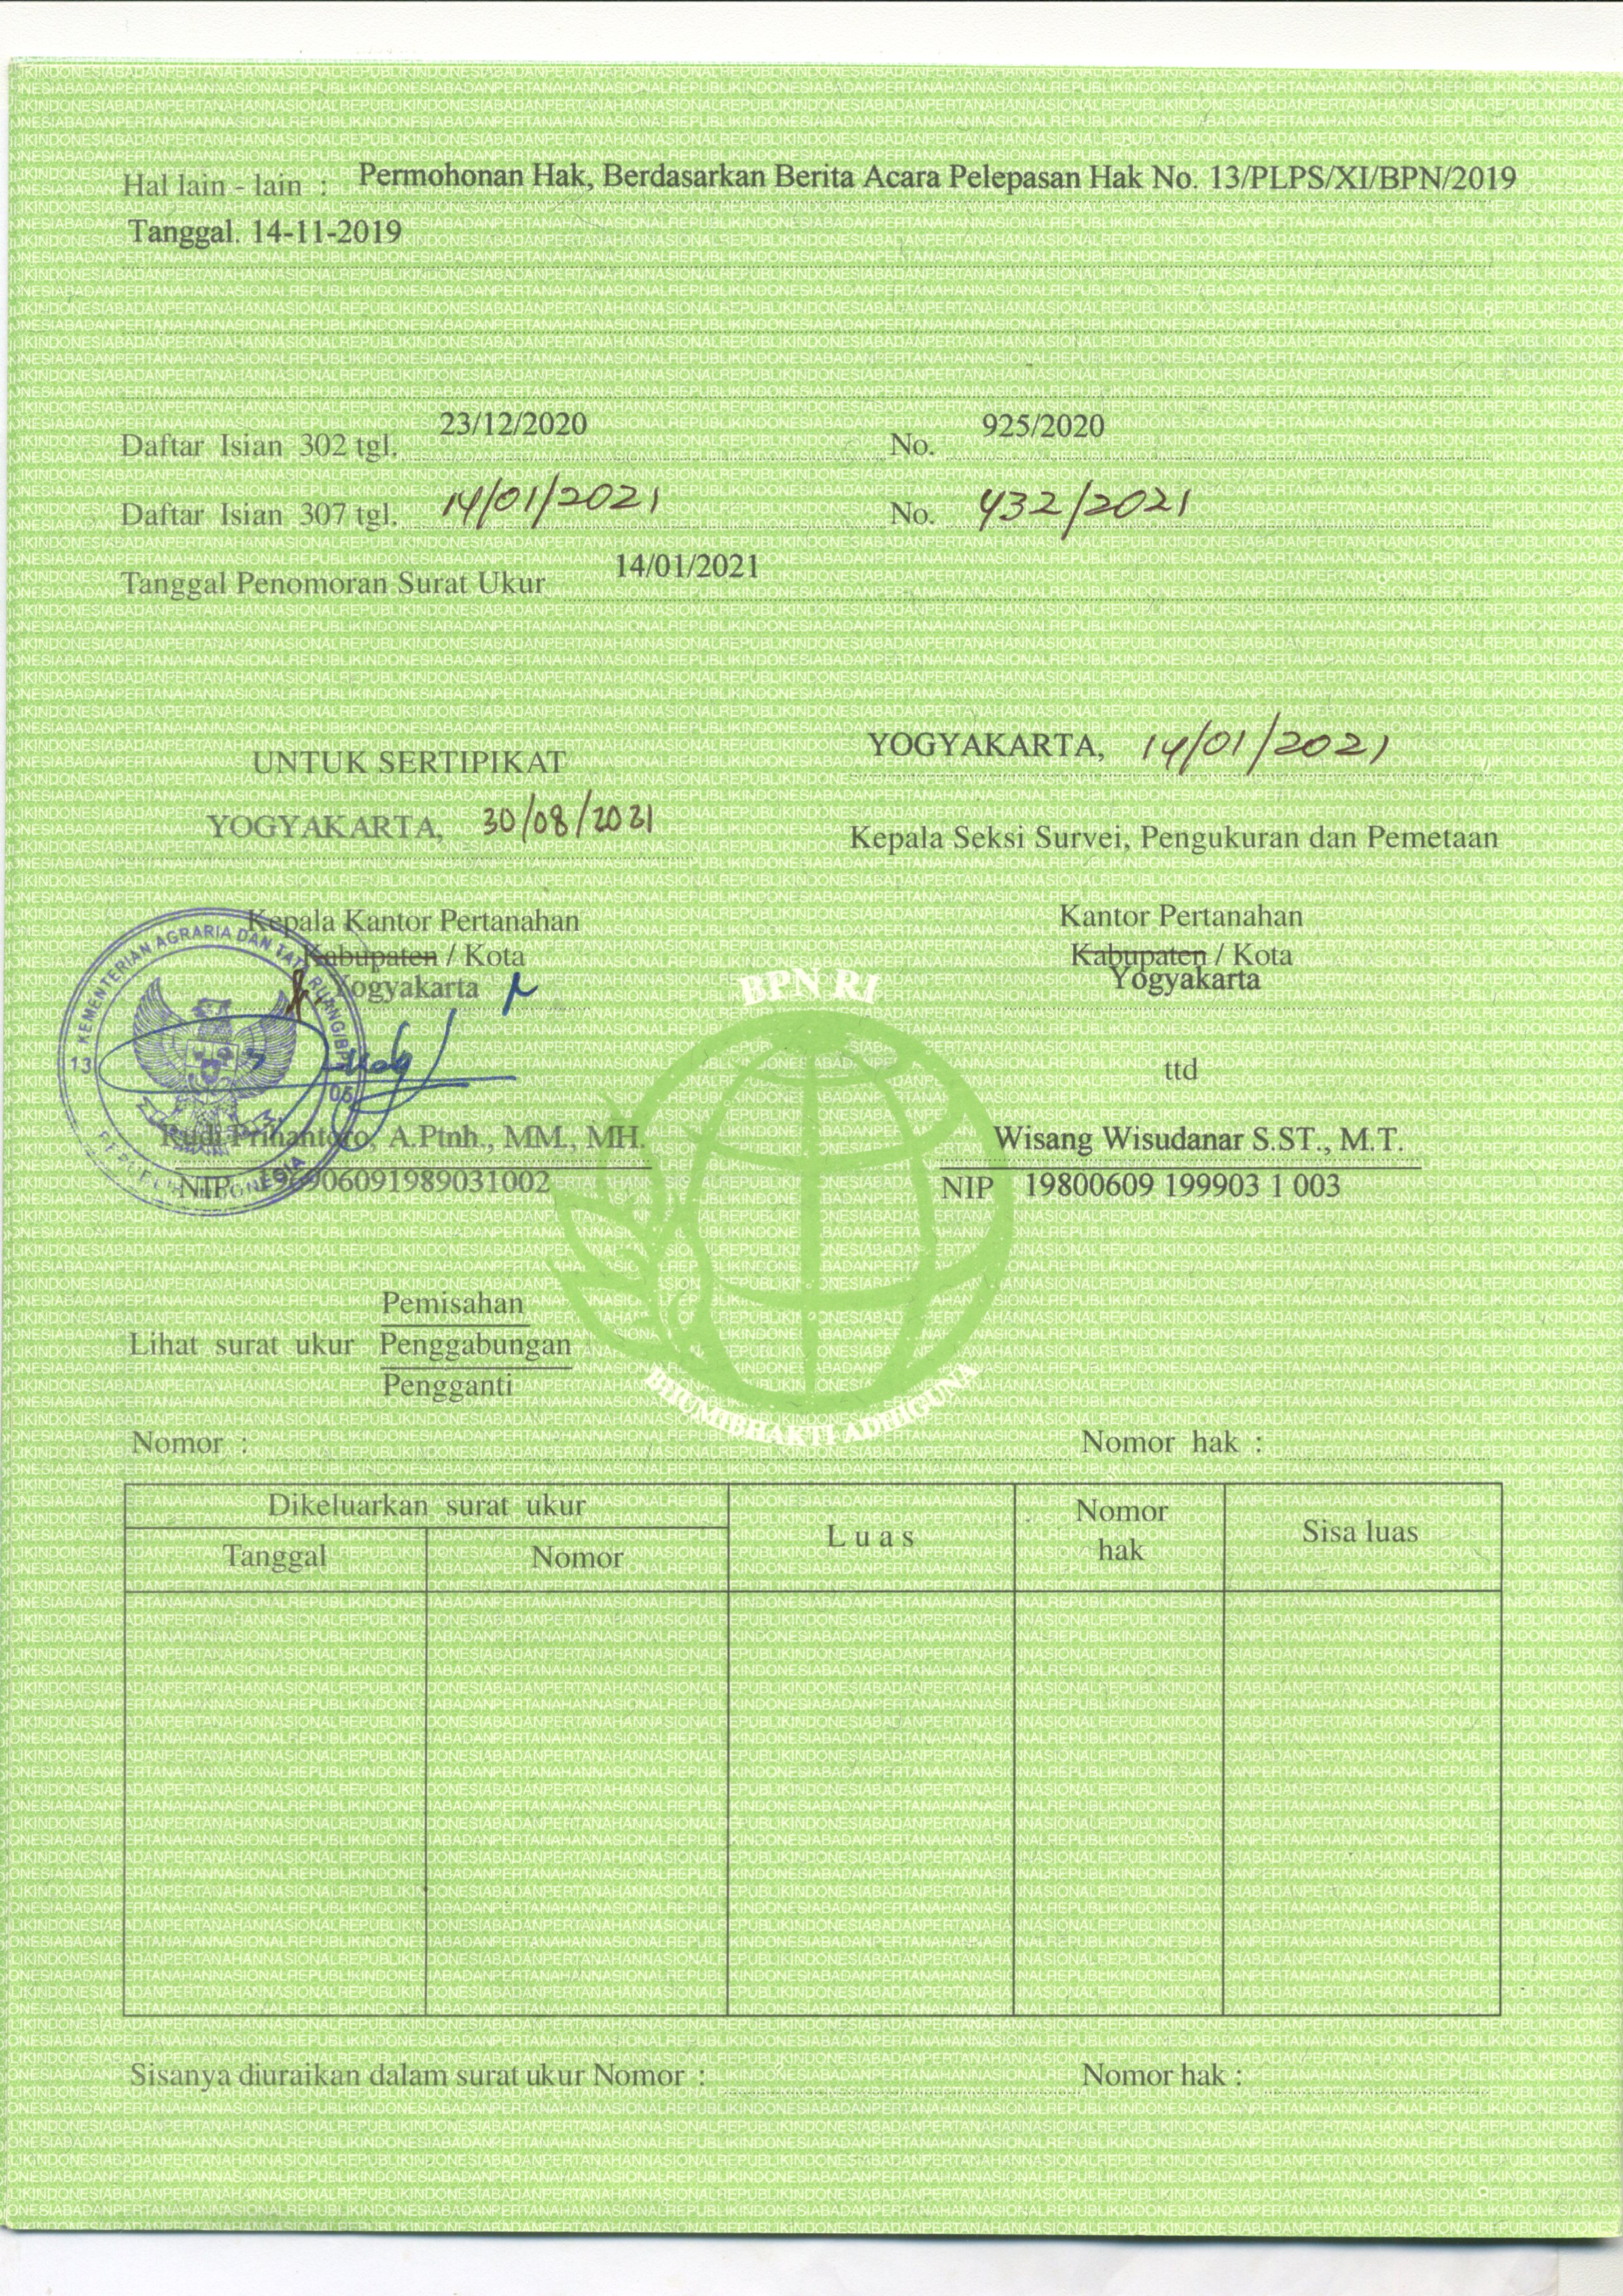 Hal lain - lain : Permohonan Hak, Berdasarkan Berita Acara Pelepasan Hak No. 13/PLPS/XI/BPN/2019
Tanggal. 14-11-2019
Daftar Isian 302 tgl. 23/12/2020 No. 925/2020
Daftar Isian 307 tgl. 14/01/2021 No. 432/2021
Tanggal Penomoran Surat Ukur 14/01/2021
UNTUK SERTIPIKAT
YOGYAKARTA, 30/08/2021
Kepala Kantor Pertanahan
Kabupaten / Kota
Yogyakarta
KEMENTERIAN AGRARIA DAN TATA RUANG/BPN
13 05
REPUBLIK INDONESIA
Rudi Prihantoro, A.Ptnh., MM., MH.
NIP 196906091989031002
YOGYAKARTA, 14/01/2021
Kepala Seksi Survei, Pengukuran dan Pemetaan
Kantor Pertanahan
Kabupaten / Kota
Yogyakarta
ttd
Wisang Wisudanar S.ST., M.T.
NIP 19800609 199903 1 003
BPN RI
BHUMIBHAKTI ADHIGUNA
Pemisahan
Lihat surat ukur Penggabungan
Pengganti
Nomor : Nomor hak :
Dikeluarkan surat ukur
Tanggal Nomor Luas Nomor hak Sisa luas
Sisanya diuraikan dalam surat ukur Nomor : Nomor hak :